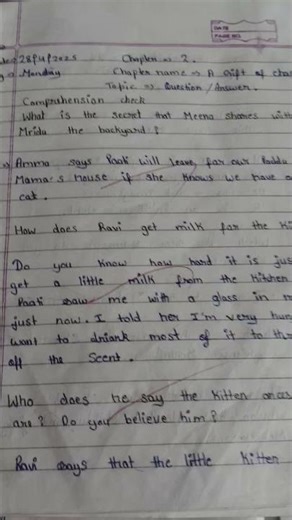 28/4/2025 Chapter → 2.
Monday Chapter name → A gift of
Topic → Question / Answer.
Comprehension check
What is the secret that Meena shares with
Mridu the backyard?
Amma says Paati will leave for our
Mama's House if she knows we have a
cat.
How does Ravi get milk for the
Do you know how hard it is
get a little milk from the kitchen
Paati saw me with a glass in
just now. I told her I'm very
want to driank most of it to
off the Scent.
Who does he say the kitten
are? Do you believe him?
Ravi says that the little kitten